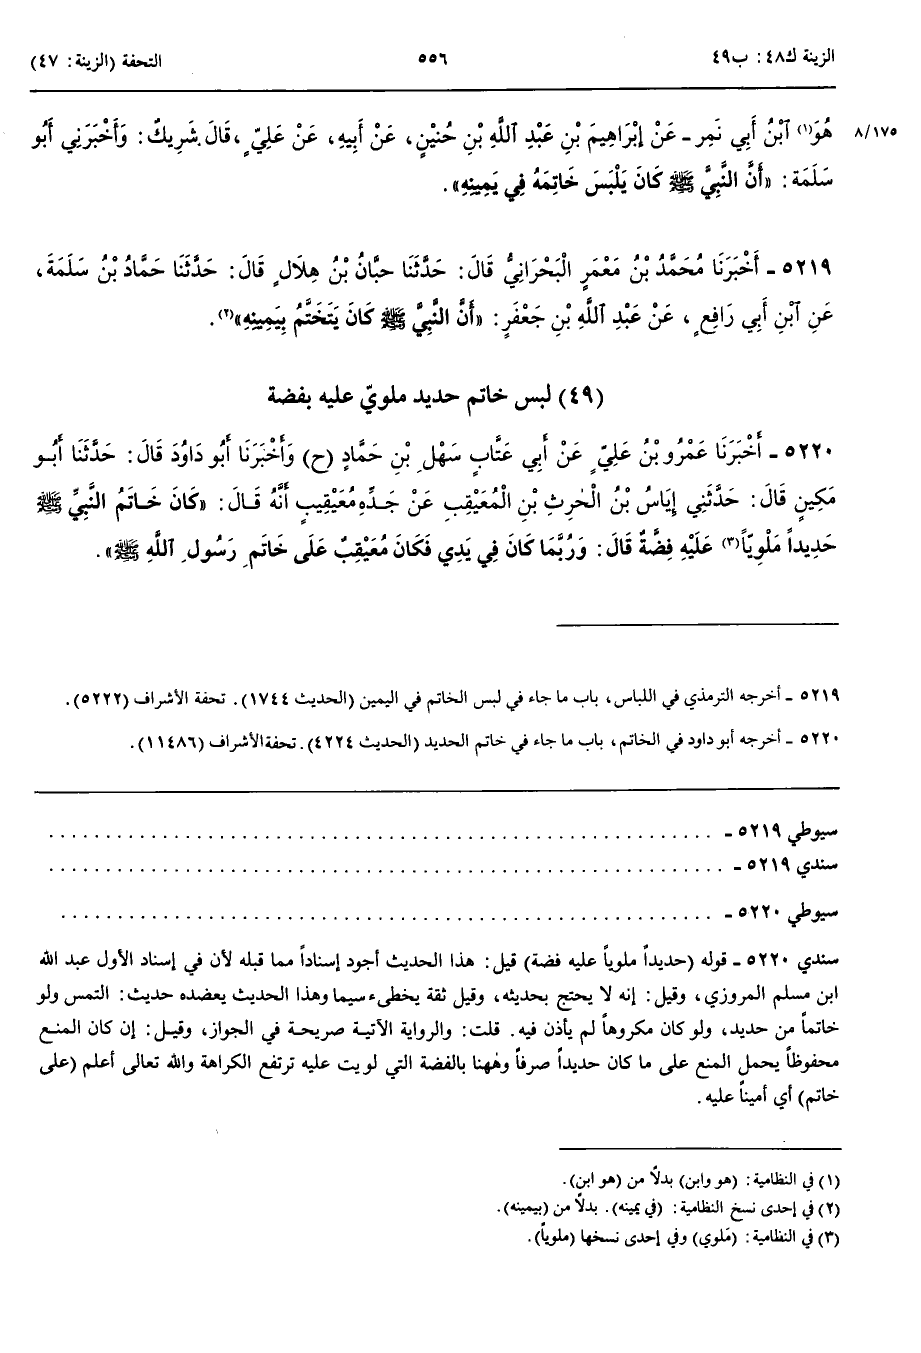 الزينة ك٤٨: ب٤٩ ٥٥٦ التحفة (الزينة: ٤٧)
٨/١٧٥ هُوَ(١) ٱبْنُ أَبِي نَمِرٍ ـ عَنْ إِبْرَاهِيمَ بْنِ عَبْدِ ٱللَّهِ بْنِ حُنَيْنٍ، عَنْ أَبِيهِ، عَنْ عَلِيٍّ، قَالَ شَرِيكٌ: وَأَخْبَرَنِي أَبُو
سَلَمَةَ: «أَنَّ النَّبِيَّ ﷺ كَانَ يَلْبَسَ خَاتِمَهُ فِي يَمِينِهِ».
٥٢١٩ ـ أَخْبَرَنَا مُحَمَّدُ بْنُ مَعْمَرٍ الْبَحْرَانِيُّ قَالَ: حَدَّثَنَا حبَّانُ بْنُ هِلَالٍ قَالَ: حَدَّثَنَا حَمَّادُ بْنُ سَلَمَةَ،
عَنِ ٱبْنِ أَبِي رَافِعٍ، عَنْ عَبْدِ ٱللَّهِ بْنِ جَعْفَرٍ: «أَنَّ النَّبِيَّ ﷺ كَانَ يَتَخَتَّمُ بِيَمِينِهِ»(٢).
(٤٩) لبس خاتم حديد ملويّ عليه بفضة
٥٢٢٠ ـ أَخْبَرَنَا عَمْرُو بْنُ عَلِيٍّ عَنْ أَبِي عَتَّابٍ سَهْلِ بْنِ حَمَّادٍ (ح) وَأَخْبَرَنَا أَبُو دَاوُدَ قَالَ: حَدَّثَنَا أَبُو
مَكِينٍ قَالَ: حَدَّثَنِي إِيَاسُ بْنُ الْحٰرِثِ بْنِ الْمُعَيْقِبِ عَنْ جَدِّهِ مُعَيْقِيبٍ أَنَّهُ قَالَ: «كَانَ خَاتَمُ النَّبِيِّ ﷺ
حَدِيداً مَلْوِيّاً(٣) عَلَيْهِ فِضَّةٌ قَالَ: وَرُبَّمَا كَانَ فِي يَدِي فَكَانَ مُعَيْقِبٌ عَلَى خَاتَمِ رَسُولِ ٱللَّهِ ﷺ».
٥٢١٩ ـ أخرجه الترمذي في اللباس، باب ما جاء في لبس الخاتم في اليمين (الحديث ١٧٤٤). تحفة الأشراف (٥٢٢٢).
٥٢٢٠ ـ أخرجه أبو داود في الخاتم، باب ما جاء في خاتم الحديد (الحديث ٤٢٢٤). تحفة الأشراف (١١٤٨٦).
سيوطي ٥٢١٩ ـ ........................................................
سندي ٥٢١٩ ـ ........................................................
سيوطي ٥٢٢٠ ـ ........................................................
سندي ٥٢٢٠ ـ قوله (حديداً ملوياً عليه فضة) قيل: هذا الحديث أجود إسناداً مما قبله لأن في إسناد الأول عبد الله
ابن مسلم المروزي، وقيل: إنه لا يحتج بحديثه، وقيل ثقة يخطىء سيما وهذا الحديث يعضده حديث: التمس ولو
خاتماً من حديد، ولو كان مكروهاً لم يأذن فيه. قلت: والرواية الآتية صريحة في الجواز، وقيل: إن كان المنع
محفوظاً يحمل المنع على ما كان حديداً صرفاً وههنا بالفضة التي لويت عليه ترتفع الكراهة والله تعالى أعلم (على
خاتم) أي أميناً عليه.
(١) في النظامية: (هو وابن) بدلًا من (هو ابن).
(٢) في إحدى نسخ النظامية: (في يمينه). بدلًا من (بيمينه).
(٣) في النظامية: (مَلوي) وفي إحدى نسخها (ملوياً).